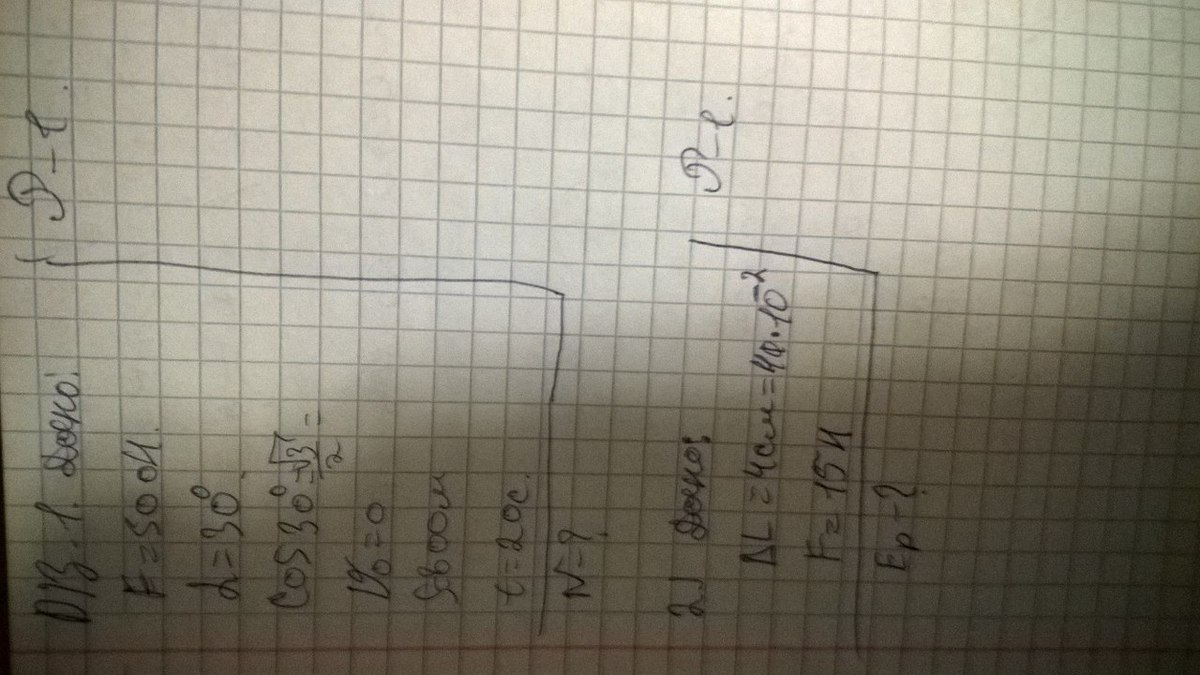 D/З. 1. Дано:
F=500Н.
α=30°
Cos30°=√3/2
V₀=0
S=800м
t=20с.
N-?
Р-е.
2. Дано:
ΔL=4см=4·10⁻²
F=15Н
Eр-?
Р-е.